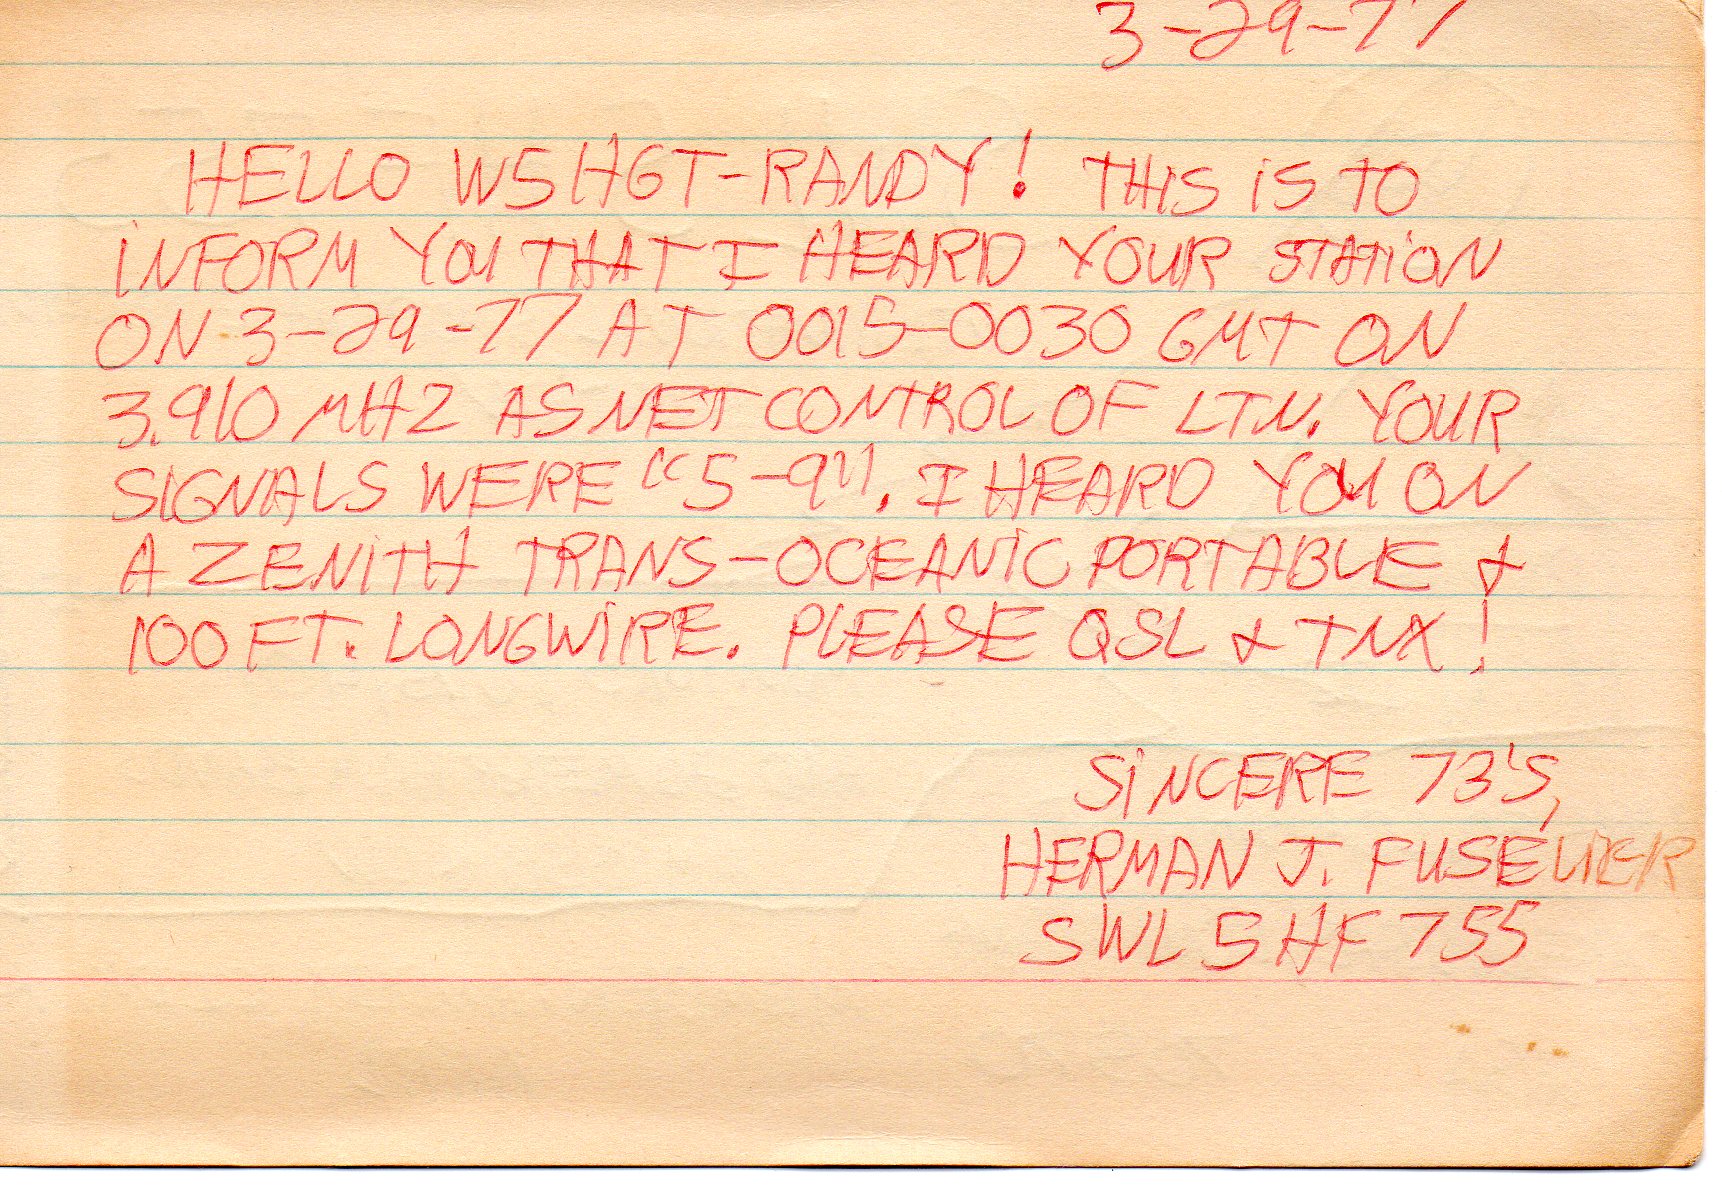 3-29-77
HELLO W5HGT-RANDY! THIS IS TO
INFORM YOU THAT I HEARD YOUR STATION
ON 3-29-77 AT 0015-0030 GMT ON
3.910 MHZ AS NET CONTROL OF LTN. YOUR
SIGNALS WERE "5-9". I HEARD YOU ON
A ZENITH TRANS-OCEANIC PORTABLE &
100 FT. LONGWIRE. PLEASE QSL & TNX!
SINCERE 73'S,
HERMAN J. FUSELIER
SWL 5HF755